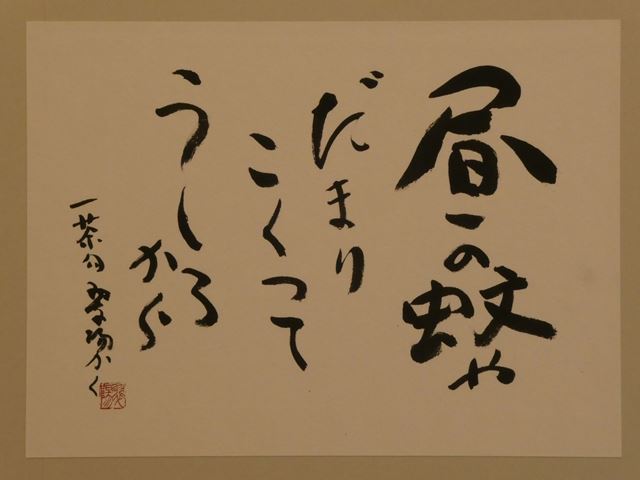 昼の蚊や
だまり
こくつて
うしろ
から
一茶句
かく